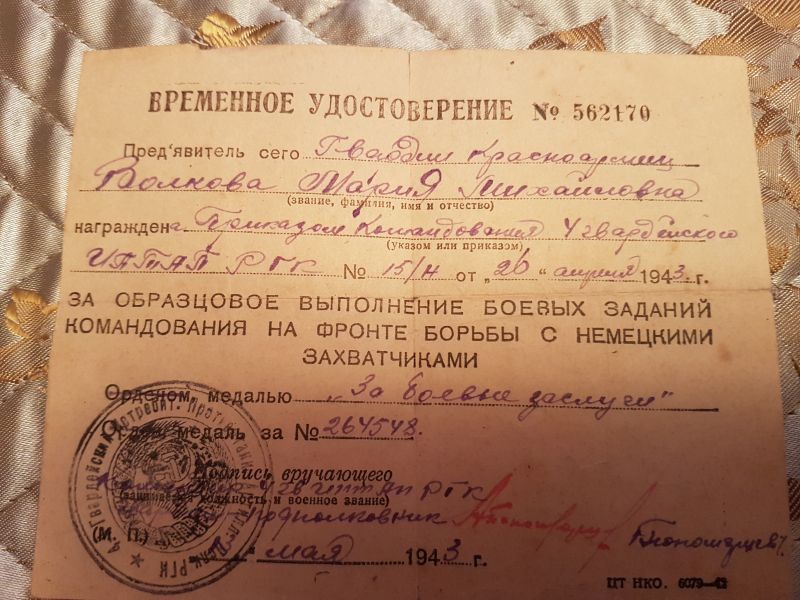 ВРЕМЕННОЕ УДОСТОВЕРЕНИЕ № 562170
Пред'явитель сего Гвардии красноармеец
Волкова Мария Михайловна
(звание, фамилия, имя и отчество)
награждена Приказом Командования 4 гвардейского
(указом или приказом)
ИПТАП РГК № 15/н от „26“ апреля 1943 г.
ЗА ОБРАЗЦОВОЕ ВЫПОЛНЕНИЕ БОЕВЫХ ЗАДАНИЙ
КОМАНДОВАНИЯ НА ФРОНТЕ БОРЬБЫ С НЕМЕЦКИМИ
ЗАХВАТЧИКАМИ
Орденом, медалью „За боевые заслуги"
Орден, медаль за № 264548.
Подпись вручающего
Командир 4 гв ИПТАП РГК
(занимаемая должность и военное звание)
подполковник
(М. П.) мая 1943 г.
ЦТ НКО. 6079—42